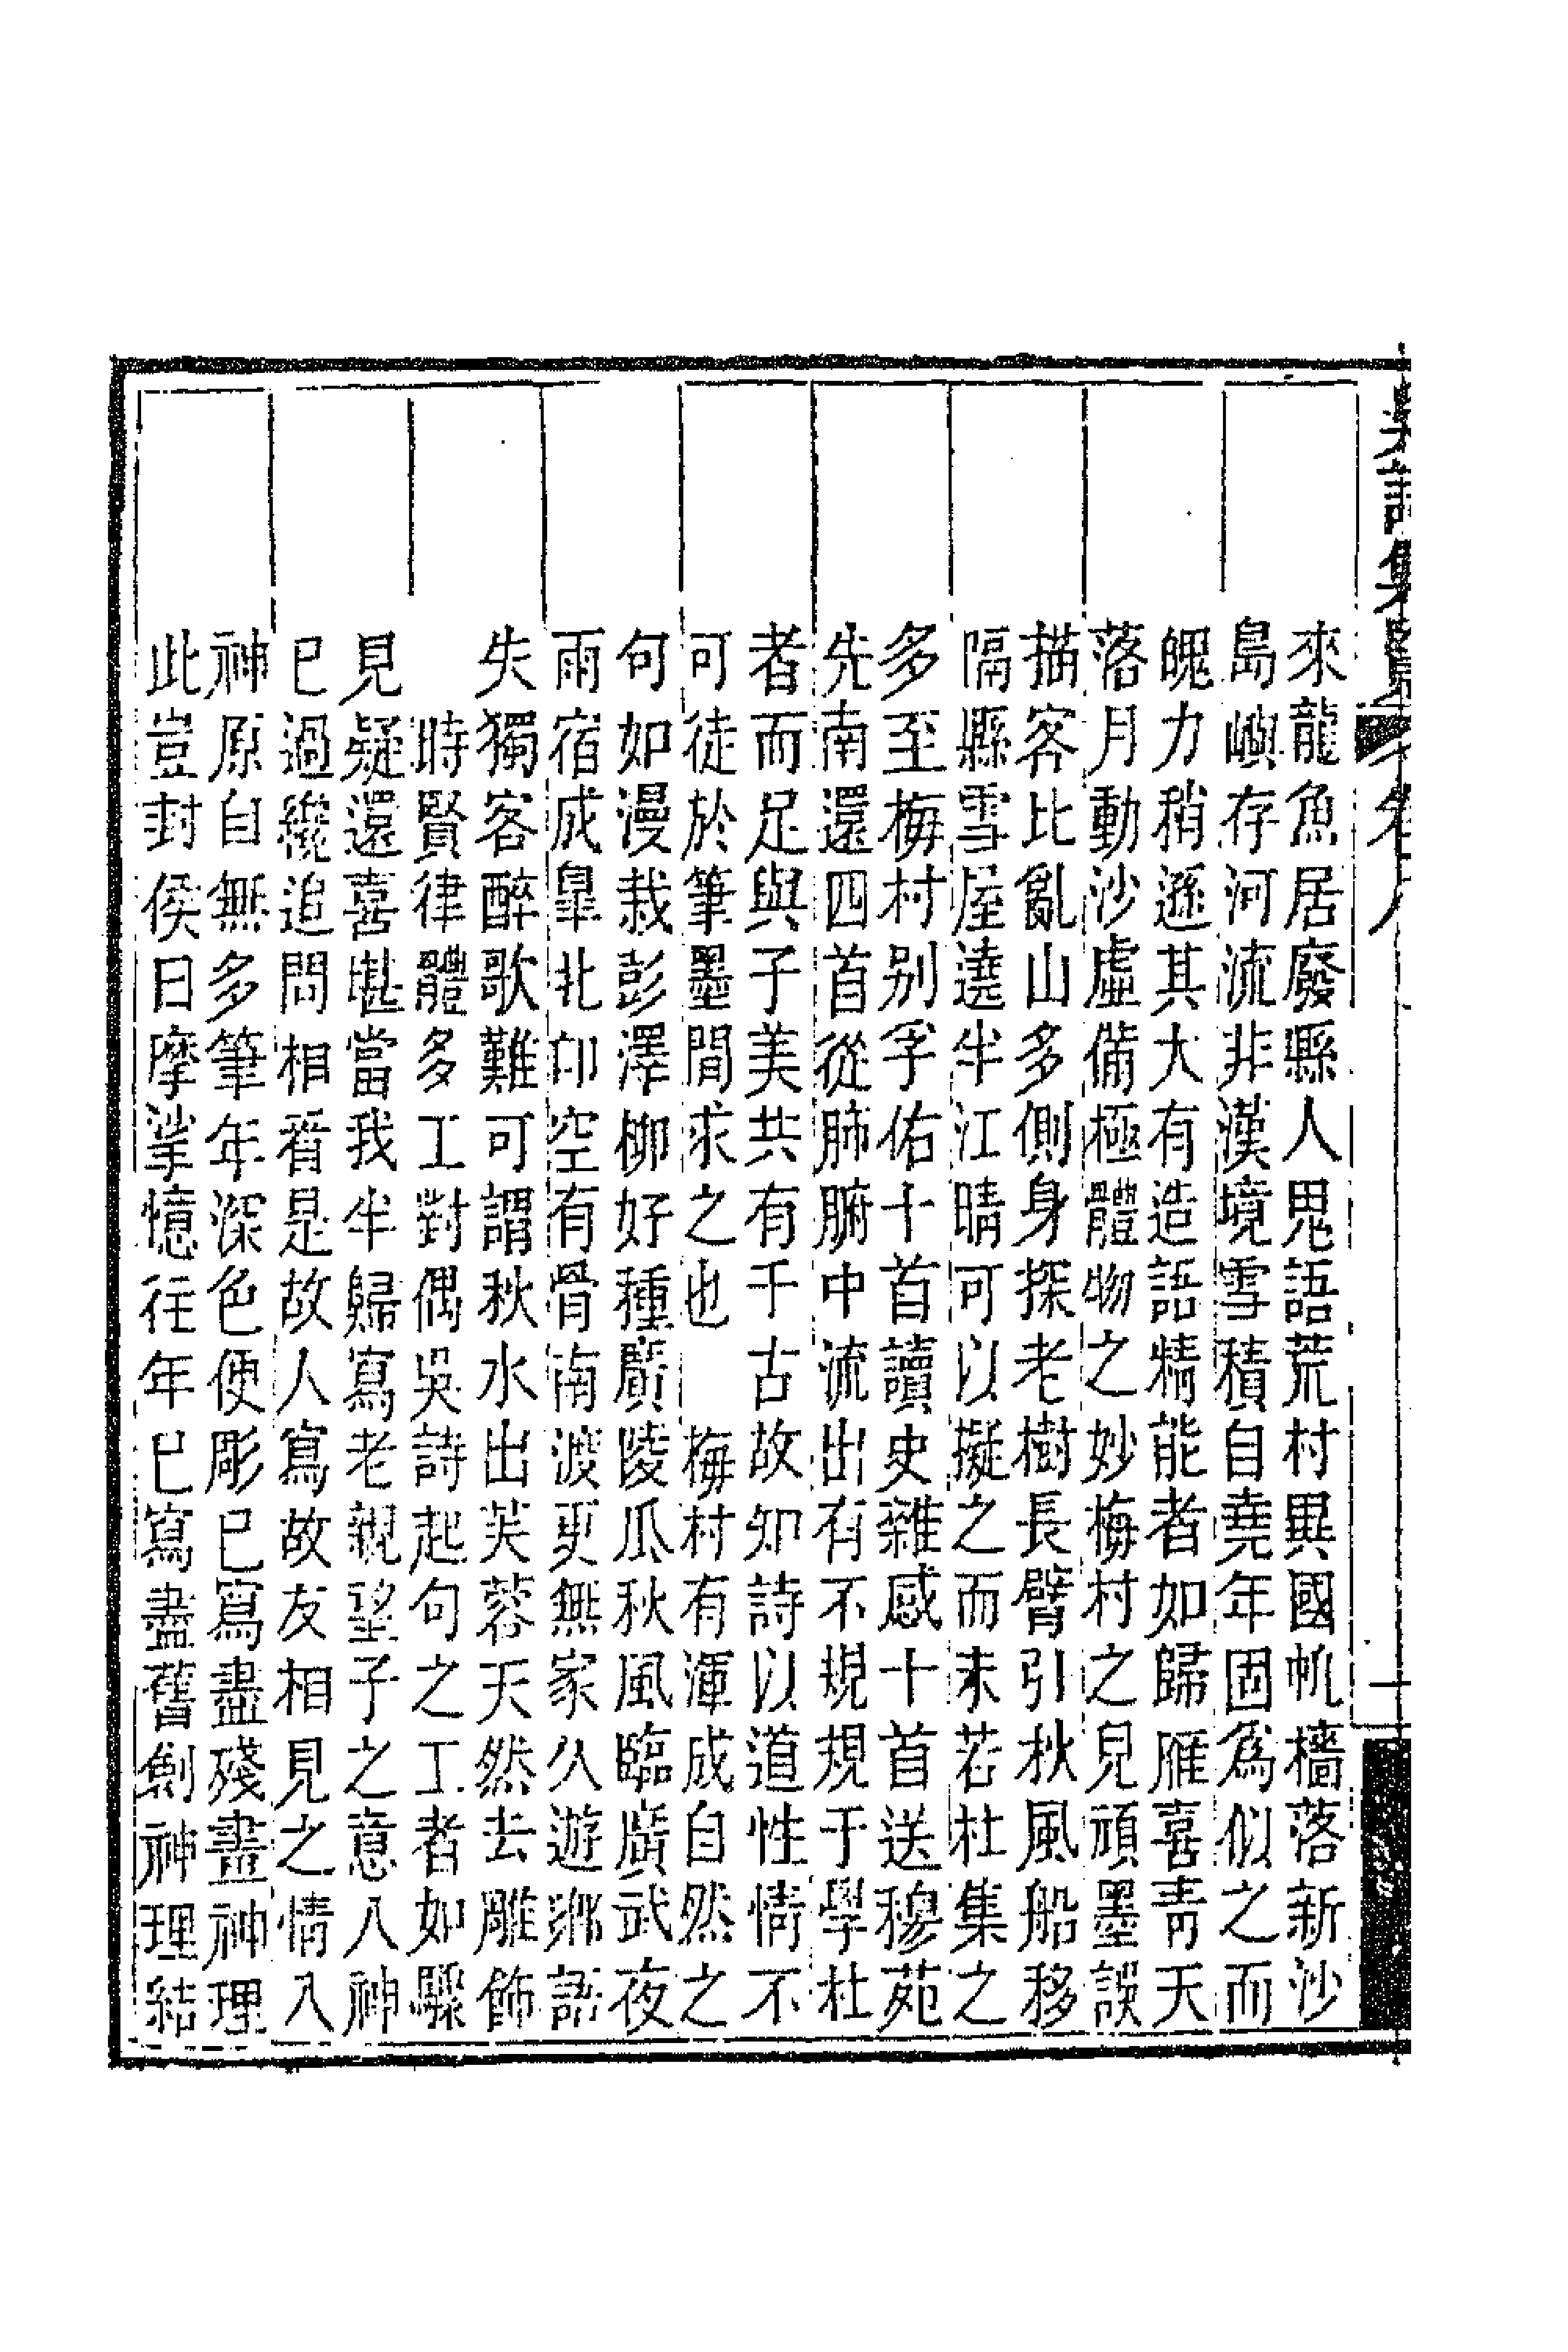 來龍魚居廢縣人鬼語荒村異國帆檣落新沙
島嶼存河流非漢境雪積自堯年固為似之而
魄力稍遜其大有造語精能者如歸雁喜青天
落月動沙虛備極體物之妙梅村之見頑墨誤
描客比亂山多側身探老樹長臂引秋風船移
隔縣雪屋遶半江晴可以擬之而未若杜集之
多至梅村别孚佑十首讀史雜感十首送穆苑
先南還四首從肺腑中流出有不規規于學杜
者而足與子美共有千古故知詩以道性情不
可徒於筆墨間求之也 梅村有渾成自然之
句如漫栽彭澤柳好種廣陵瓜秋風臨廣武夜
雨宿成臯北印空有骨南渡更無家久遊鄉語
失獨客醉歌難可謂秋水出芙蓉天然去雕飾
時賢律體多工對偶吳詩起句之工者如驟
見疑還喜堪當我半歸寫老親望子之意入神
已過纔追問相看是故人寫故友相見之情入
神原自無多筆年深色便彫已寫盡殘畫神理
此豈封侯日摩挲憶往年已寫盡舊劍神理結